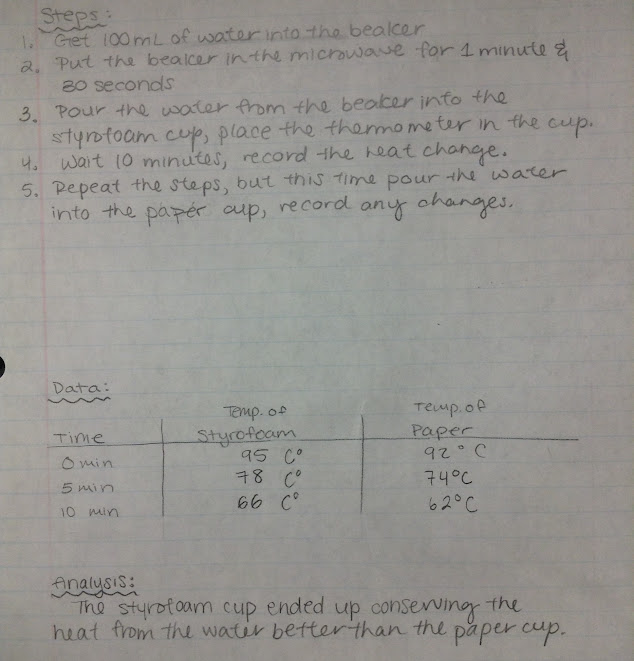 Steps:
1. Get 100mL of water into the beaker
2. Put the beaker in the microwave for 1 minute &
30 seconds
3. Pour the water from the beaker into the
styrofoam cup, place the thermometer in the cup.
4. Wait 10 minutes, record the heat change.
5. Repeat the steps, but this time pour the water
into the paper cup, record any changes.
Data:
Time Temp. of Styrofoam Temp. of Paper
0 min 95 C° 92° C
5 min 78 C° 74°C
10 min 66 C° 62°C
Analysis:
The styrofoam cup ended up conserving the
heat from the water better than the paper cup.